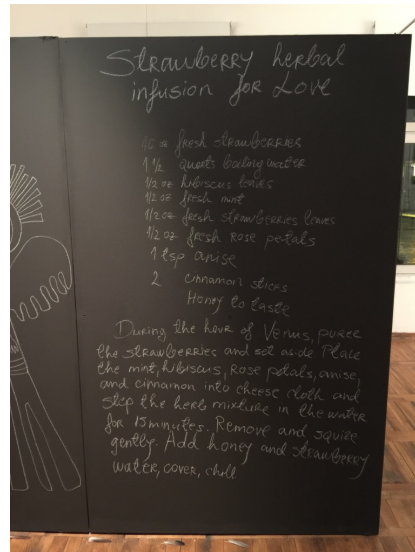 Strawberry herbal
infusion for Love
10 oz fresh strawberries
1 1/2 quarts boiling water
1/2 oz hibiscus leaves
1/2 oz fresh mint
1/2 oz fresh strawberries leaves
1/2 oz fresh rose petals
1 tsp anise
2 cinnamon sticks
Honey to taste
During the hour of Venus, puree
the strawberries and set aside Place
the mint, hibiscus, rose petals, anise,
and cinnamon into cheese cloth and
step the herb mixture in the water
for 15 minutes. Remove and squire
gently. Add honey and strawberry
water, cover, chill